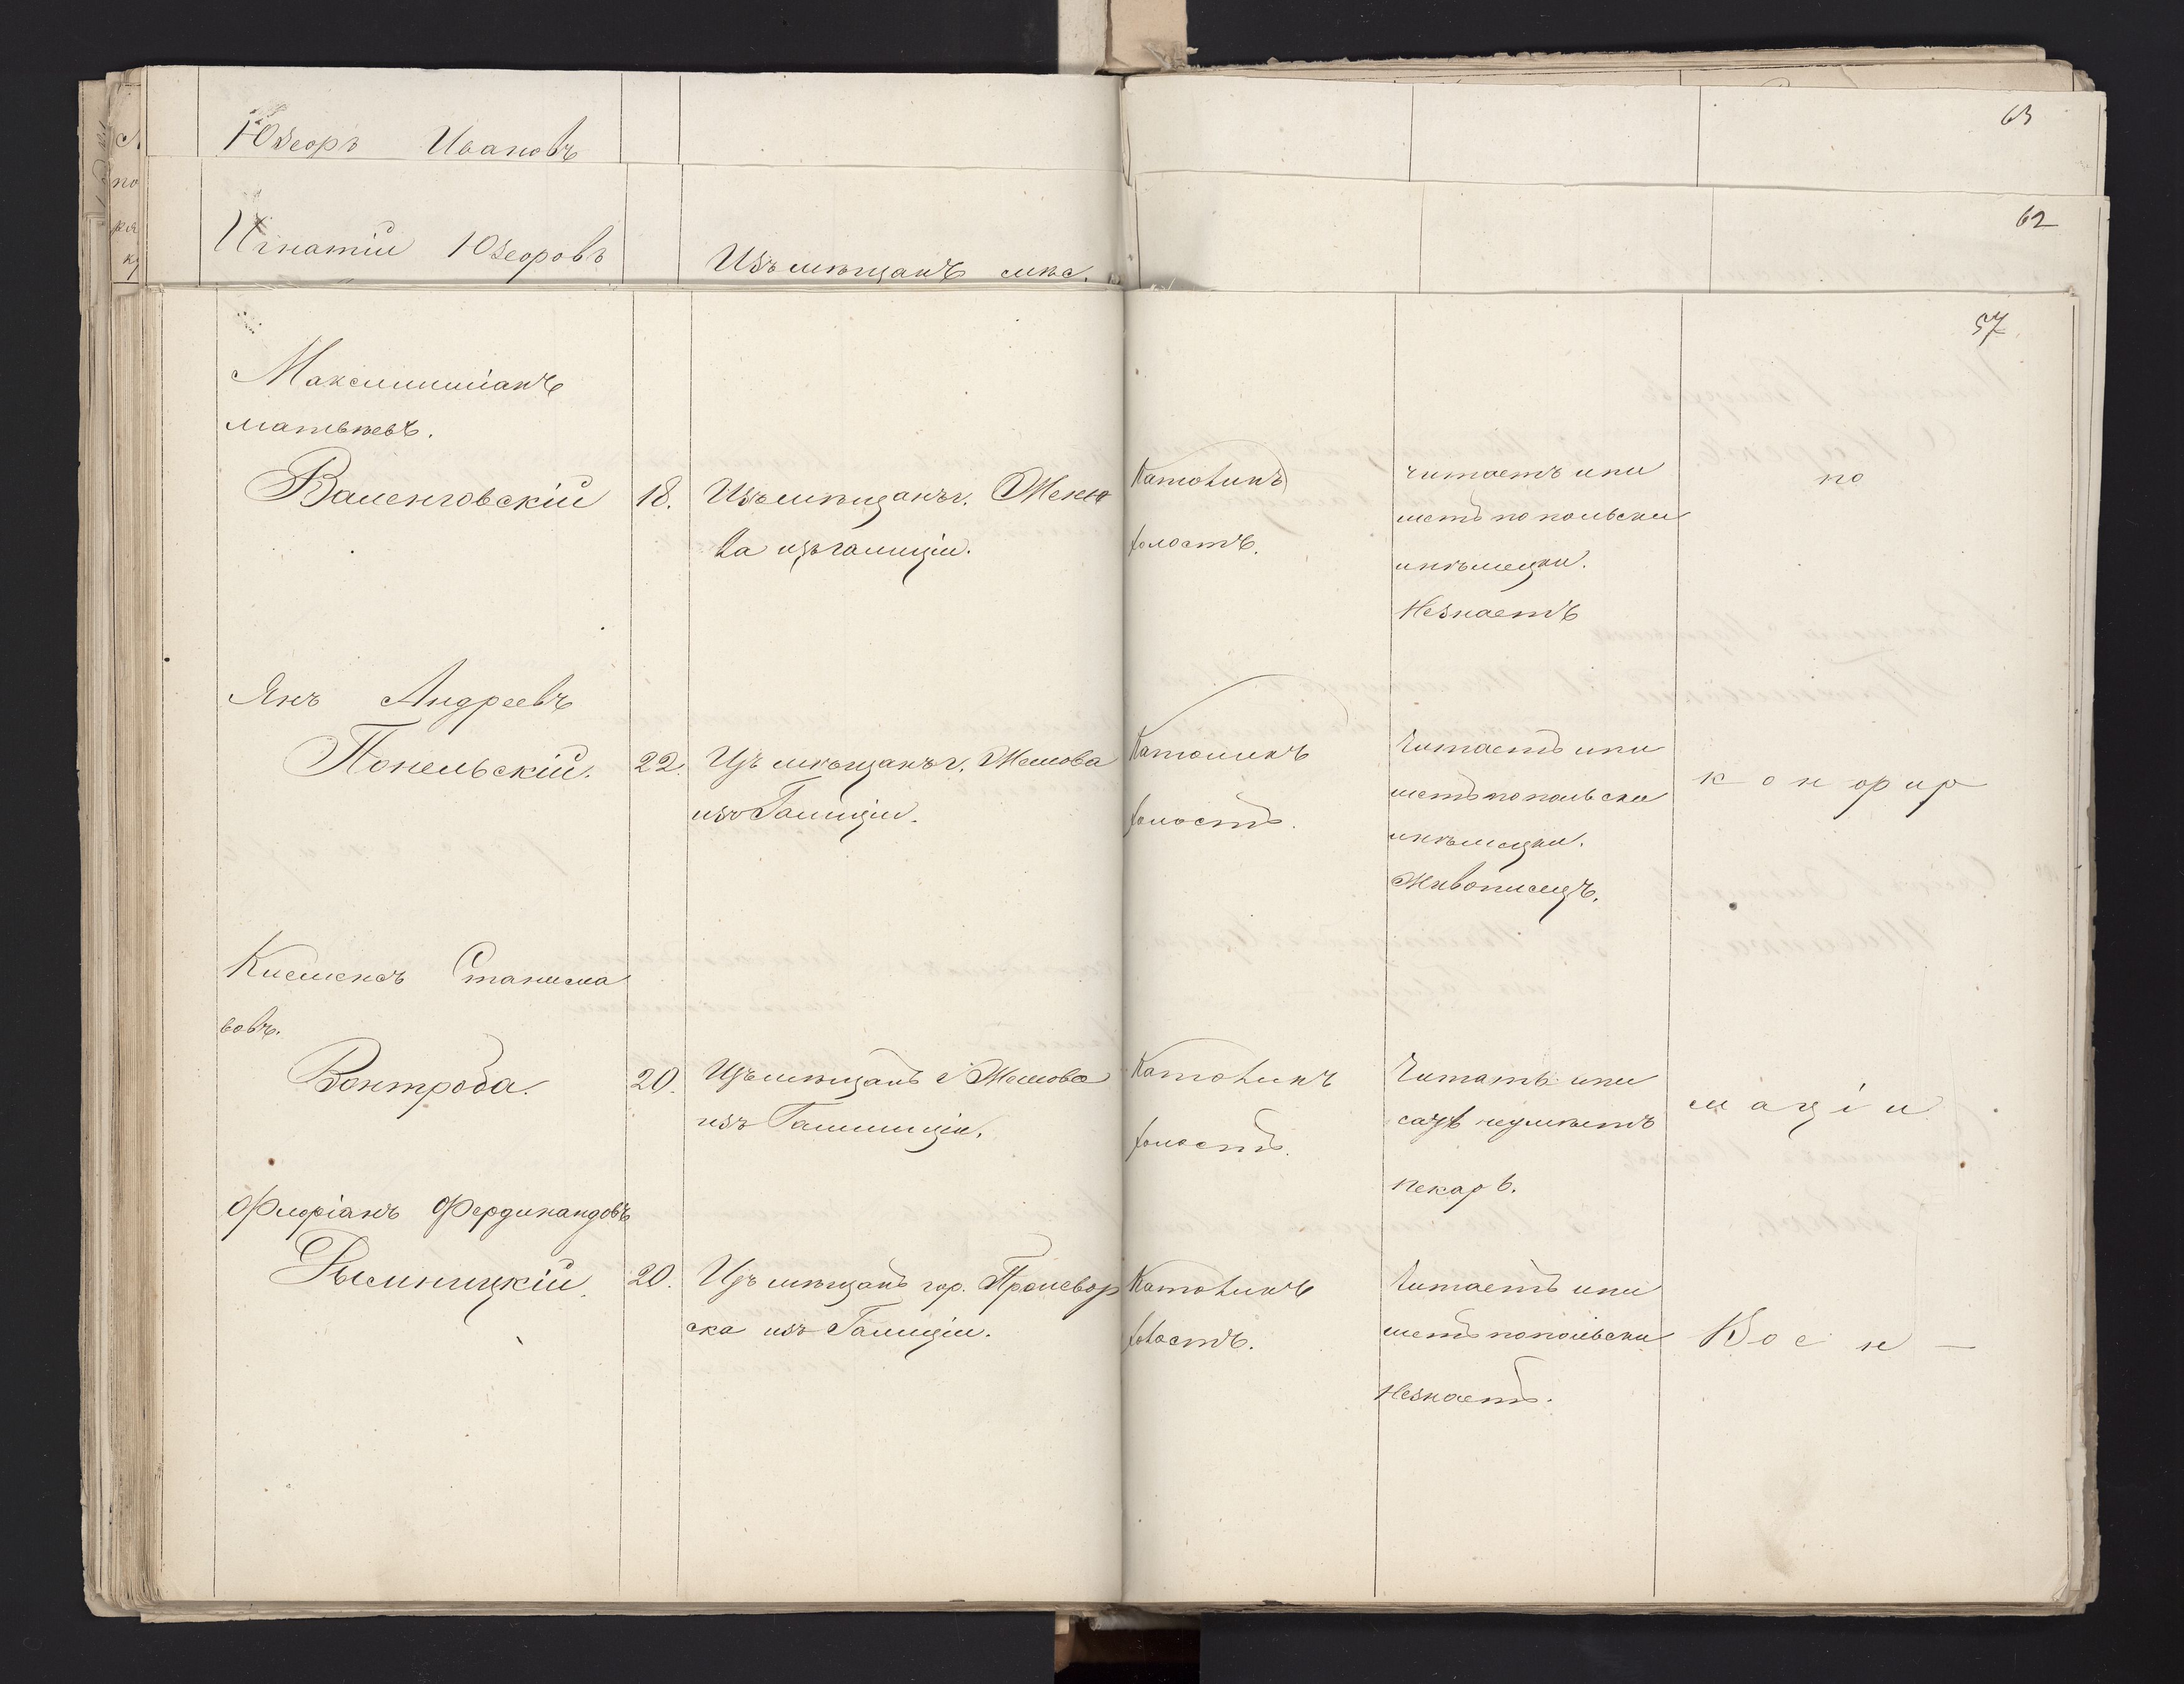 63
Юзефъ Ивановъ
62
Игнатій Юзефовъ
Изъ мѣщанъ мѣс.
57
Максимиліанъ
Матвѣевъ.
Валенговскій 18. Изъ мѣщанъ г.
ва изъ Галиціи.
Католикъ
холостъ.
Читаетъ и пи
шетъ по польски
и нѣмецки.
Незнаетъ
по
Янъ Андреевъ
Понельскій. 22. Изъ мѣщанъ г. Жешова
изъ Галиціи.
Католикъ
холостъ.
Читаетъ и пи
шетъ по польски
и нѣмецки.
Живописецъ.
конфир
Клеменсъ Станисла
вовъ.
Вонтроба. 20. Изъ мѣщанъ г Жешова
изъ Галлиціи.
Католикъ
холостъ.
Читать и пи
сать неумѣетъ
пекарь.
маціи
Флоріанъ Фердинандовъ
Рысиницкій. 20. Изъ мѣщанъ гор. Прошевор
ска изъ Галиціи.
Католикъ
холостъ.
Читаетъ и пи
шетъ по польски
Незнаетъ.
Восн —